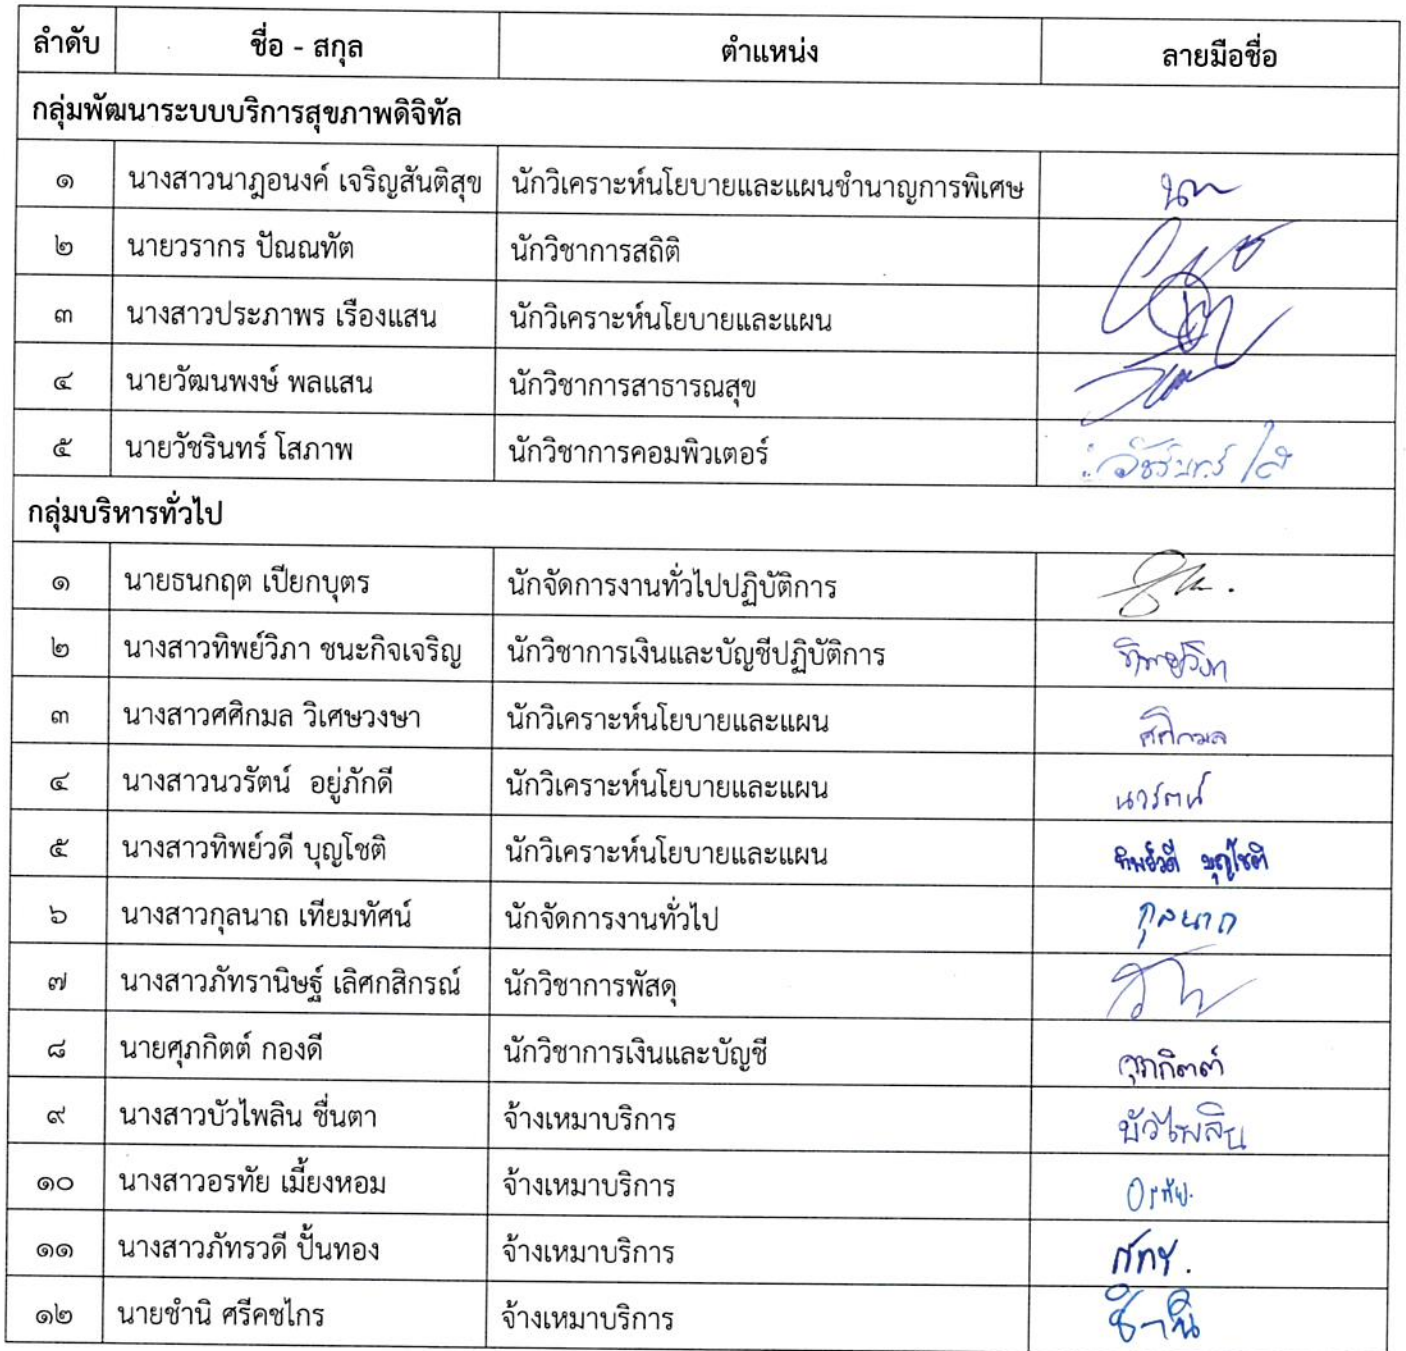 ลำดับ ชื่อ - สกุล ตำแหน่ง ลายมือชื่อ
กลุ่มพัฒนาระบบบริการสุขภาพดิจิทัล
๑ นางสาวนาฎอนงค์ เจริญสันติสุข นักวิเคราะห์นโยบายและแผนชำนาญการพิเศษ
๒ นายวรากร ปัณณทัต นักวิชาการสถิติ
๓ นางสาวประภาพร เรืองแสน นักวิเคราะห์นโยบายและแผน
๔ นายวัฒนพงษ์ พลแสน นักวิชาการสาธารณสุข
๕ นายวัชรินทร์ โสภาพ นักวิชาการคอมพิวเตอร์ วัชรินทร์ โส
กลุ่มบริหารทั่วไป
๑ นายธนกฤต เปียกบุตร นักจัดการงานทั่วไปปฏิบัติการ
๒ นางสาวทิพย์วิภา ชนะกิจเจริญ นักวิชาการเงินและบัญชีปฏิบัติการ ทิพย์วิภา
๓ นางสาวศศิกมล วิเศษวงษา นักวิเคราะห์นโยบายและแผน ศศิกมล
๔ นางสาวนวรัตน์ อยู่ภักดี นักวิเคราะห์นโยบายและแผน นวรัตน์
๕ นางสาวทิพย์วดี บุญโชติ นักวิเคราะห์นโยบายและแผน ทิพย์วดี บุญโชติ
๖ นางสาวกุลนาถ เทียมทัศน์ นักจัดการงานทั่วไป กุลนาถ
๗ นางสาวภัทรานิษฐ์ เลิศกสิกรณ์ นักวิชาการพัสดุ
๘ นายศุภกิตต์ กองดี นักวิชาการเงินและบัญชี ศุภกิตต์
๙ นางสาวบัวไพลิน ชื่นตา จ้างเหมาบริการ บัวไพลิน
๑๐ นางสาวอรทัย เมี้ยงหอม จ้างเหมาบริการ อรทัย.
๑๑ นางสาวภัทรวดี ปั้นทอง จ้างเหมาบริการ
๑๒ นายชำนิ ศรีคชไกร จ้างเหมาบริการ ชำนิ